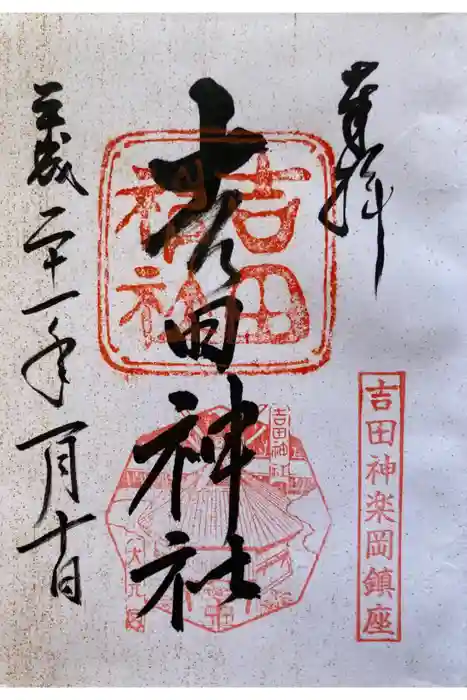 奉拝
吉田神社
平成二十一年一月十日
吉田神社
吉田神社
大元宮
吉田神楽岡鎮座